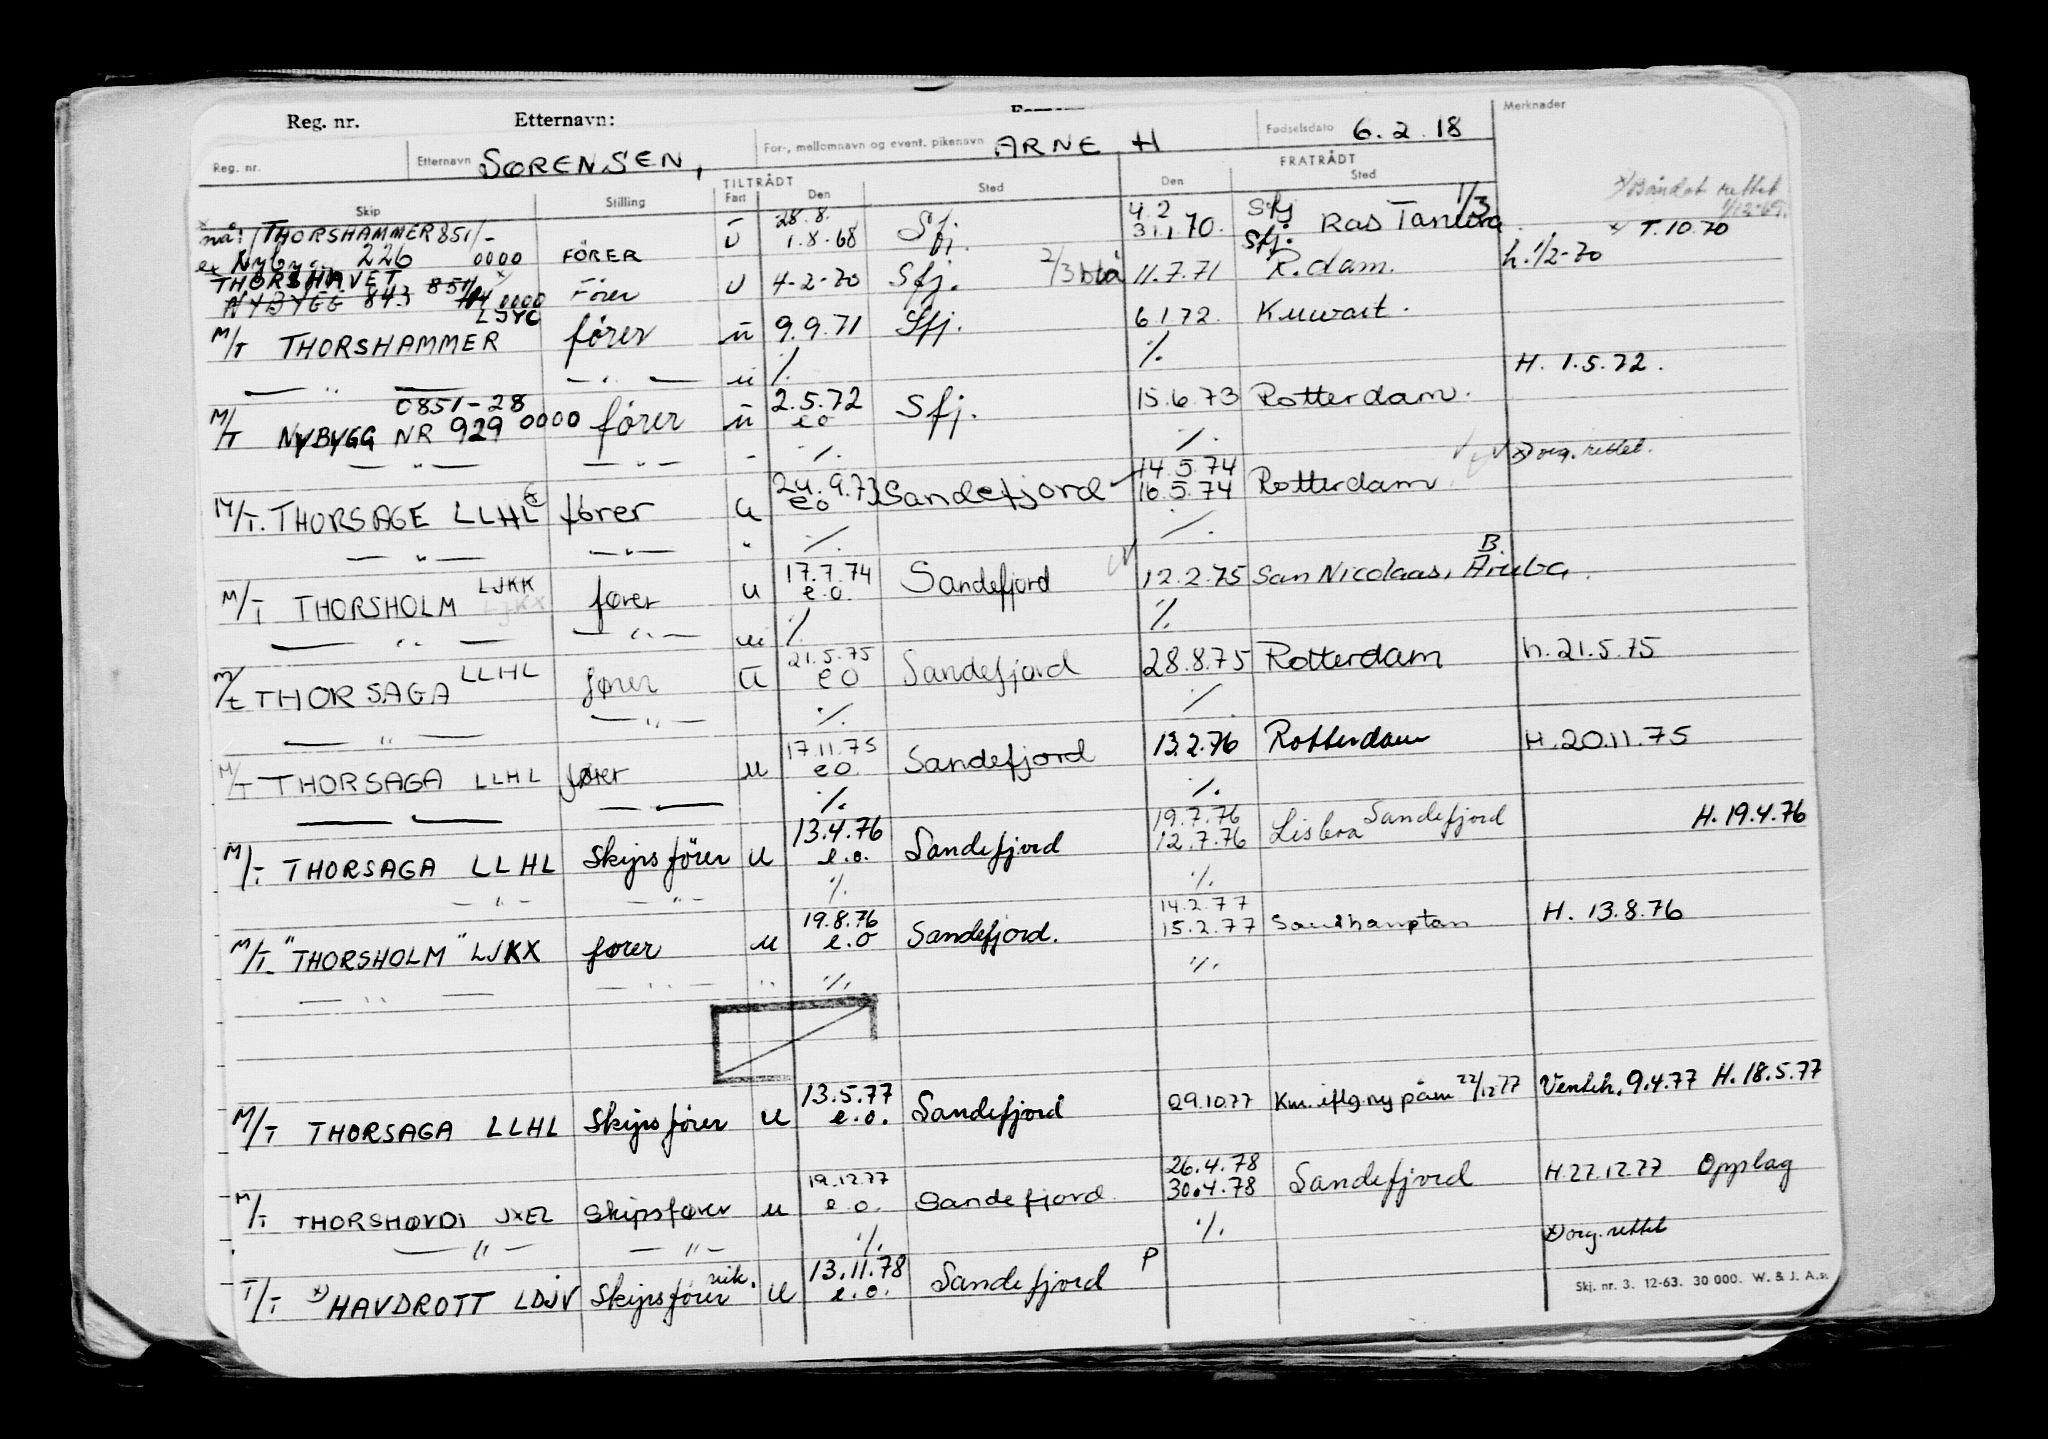 Reg. nr. Etternavn:
Reg. nr. Etternavn SØRENSEN, For-, mellomnavn og event. pikenavn ARNE H Fødselsdato 6.2.18 Merknader
TILTRÅDT FRATRÅDT
Skip Stilling Fart Den Sted Den Sted
28.8. 4.2 Sfj 1/3 x) Båndat rettet 1/12-69.
nå: THORSHAMMER 851/- ū 1.8-68 Sfj. 31.1.70. Ras Tanura x) T.10.70
ex Nybygg 226 0000 FÖRER Sfj. Sfj. h. 1/2-70
THORSHAVET 851/ x Fører U 4-2-70 Sfj. 2/3 blå 11.7.71 R.dam.
NYBYGG 843 0000
LJYC
M/T THORSHAMMER fører ū 9.9.71 Sfj. 6.1.72. Kuwait.
— " — — " — u % % H. 1.5.72.
0851-28
M/T NYBYGG NR 929 0000 fører ū 2.5.72 e o Sfj. 15.6.73 Rotterdam.
— " — — " — - % % x) org. rettet.
14.5.74
M/T. THORSAGE LLHL fører u 24.9.73 e o Sandefjord 16.5.74 Rotterdam
— " — — " — " % %
M/T THORSHOLM LJKK LJKX fører u 17.7.74 e.o. Sandefjord 12.2.75 San Nicolaas, B. Aruba.
— " — — " — u % %
M/t THORSAGA LLHL fører ū 21.5.75 e o Sandefjord 28.8.75 Rotterdam h. 21.5.75
— " — — " — % %
M/T THORSAGA LLHL fører u 17.11.75 e o. Sandefjord 13.2.76 Rotterdam H. 20.11.75
— — — — % %
19.7.76 Sandefjord
M/T THORSAGA LLHL Skipsfører u 13.4.76 e.o. Sandefjord 12.7.76 Lisboa H. 19.4.76
— " — — " — % %
14.2.77
M/T "THORSHOLM" LJKX fører u 19.8.76 e.o Sandefjord. 15.2.77 Southampton H. 13.8.76
— " — — " — " % %
M/T THORSAGA LLHL Skipsfører u 13.5.77 e.o. Sandefjord 29.10.77 Km. iflg. ny påm 22/12 77 Venteh. 9.4.77 H. 18.5.77
26.4.78
M/T THORSHØVDI JXEZ Skipsfører u 19.12.77 e o. Sandefjord 30.4.78 Sandefjord H. 27.12.77 Opplag
— " — — " — % % x) org. rettet
T/T x) HAVDROTT LDJV Skipsfører vik. U 13.11.78 e.o. Sandefjord P
Skj. nr. 3. 12-63. 30 000. W. & J. A.s.